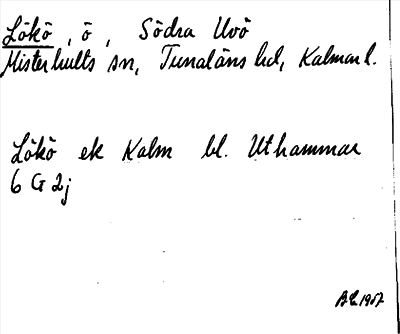 Lökö, ö, Södra Uvö
Misterhults sn, Tunaläns hd, Kalmar l.
Lökö ek Kalm bl. Uthammar
6 G 2j
1957